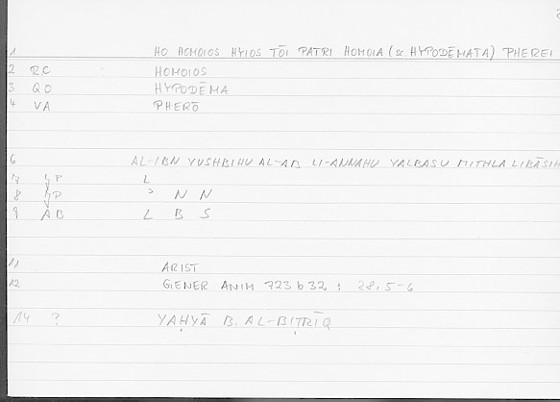 1 HO HOMOIOS HYIOS TŌI PATRI HOMOIA (sc HYPODĒMATA) PHEREI
2 RC HOMOIOS
3 QO HYPODĒMA
4 VA PHERŌ
6 AL-IBN YUSHBIHU AL-AB LI-ANNAHU YALBASU MITHLA LIBĀSIH
7 L
8 ʾ N N
9 AB L B S
11 ARIST
12 GENER ANIM 723 b 32 ; 28,5-6
14 ? YAḤYĀ B. AL-BIṬRĪQ